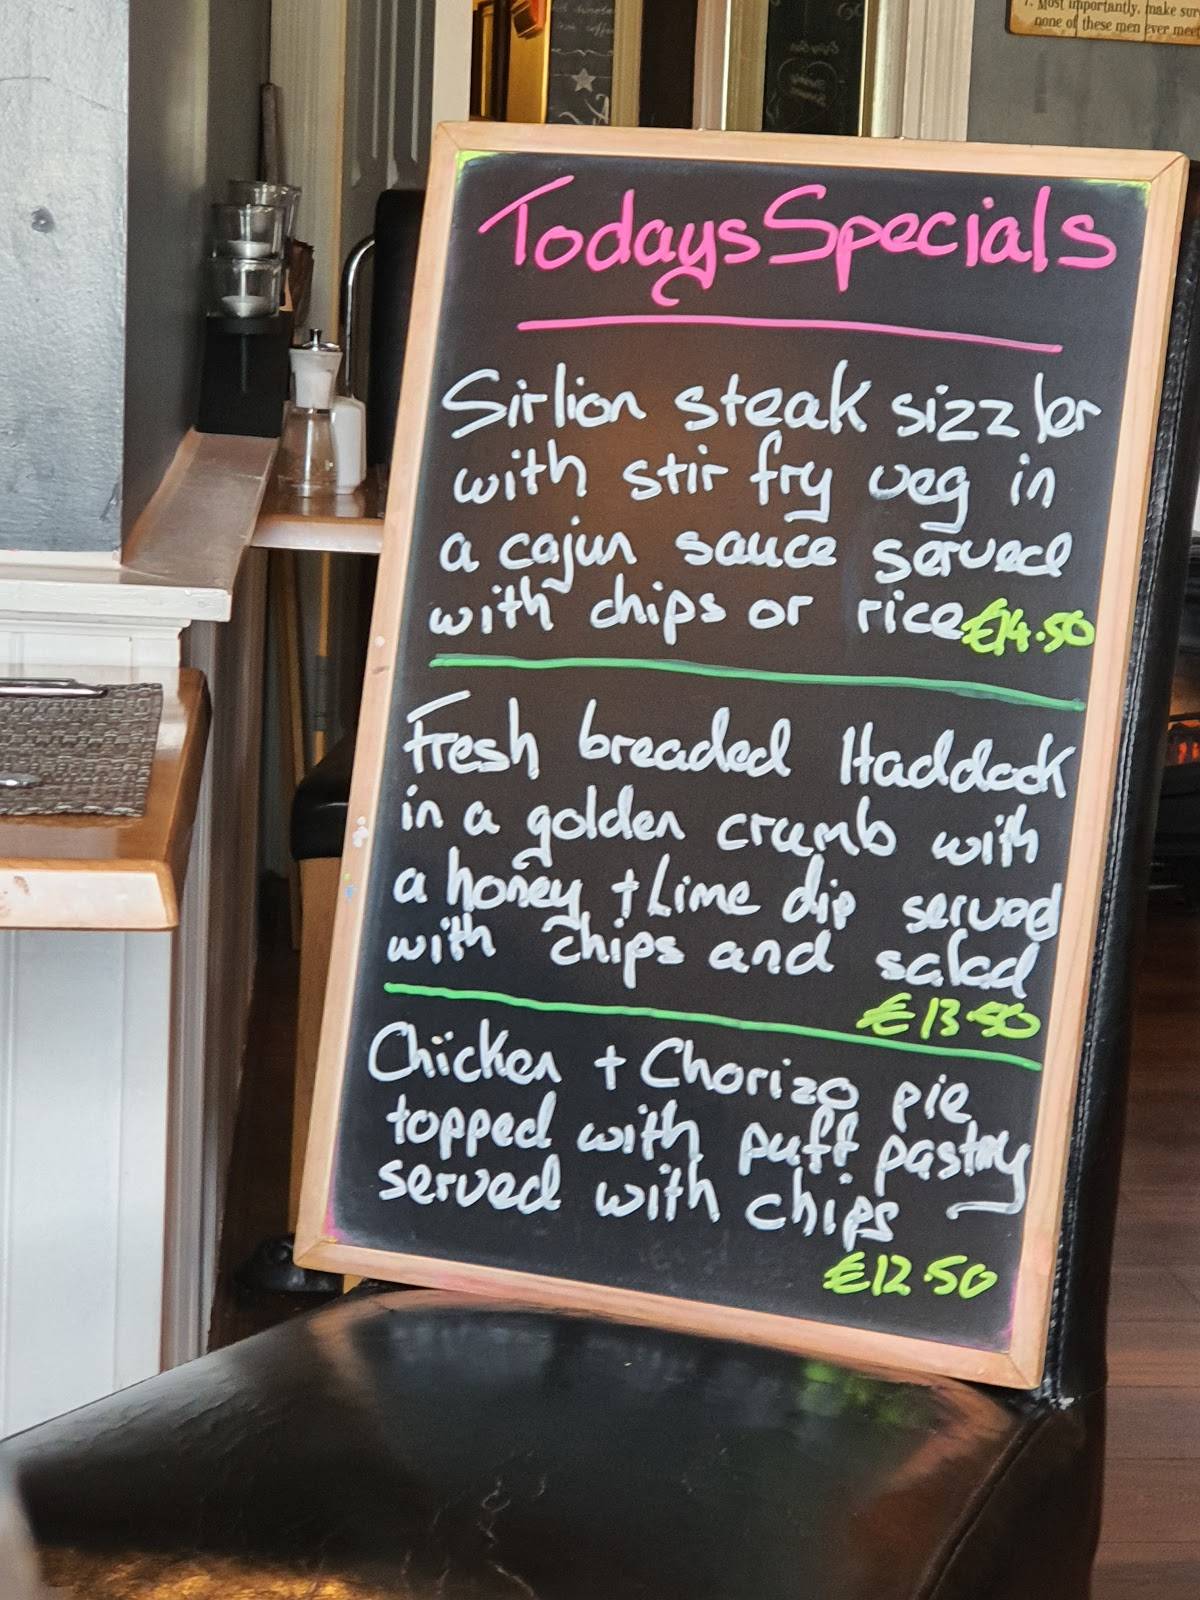 7. Most importantly, make sure
none of these men ever meet
Todays Specials
Sirlion steak sizzler
with stir fry veg in
a cajun sauce served
with chips or rice €14.50
Fresh breaded Haddock
in a golden crumb with
a honey + Lime dip served
with chips and salad
€13.50
Chicken + Chorizo pie
topped with puff pastry
served with chips
€12.50